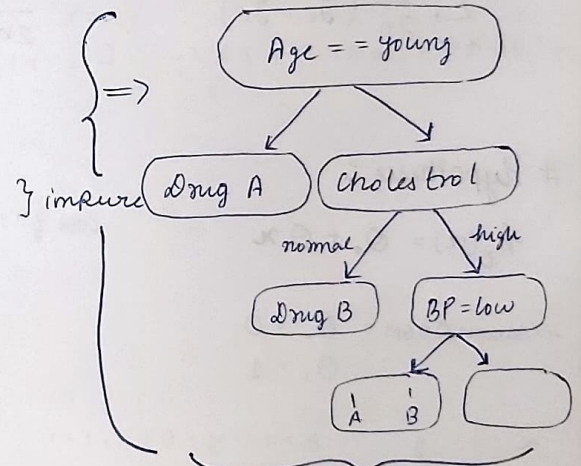 Age == young
} impure
Drug A
Cholestrol
normal
high
Drug B
BP = low
A B